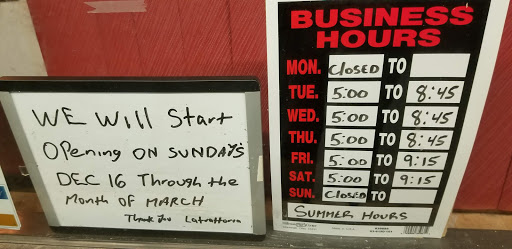 WE Will Start
Opening ON SUNDAYS
DEC 16 Through the
Month OF MARCH
Thank You Latrattoria
BUSINESS
HOURS
MON. CLOSED TO
TUE. 5:00 TO 8:45
WED. 5:00 TO 8:45
THU. 5:00 TO 8:45
FRI. 5:00 TO 9:15
SAT. 5:00 TO 9:15
SUN. CLOSED TO
SUMMER HOURS